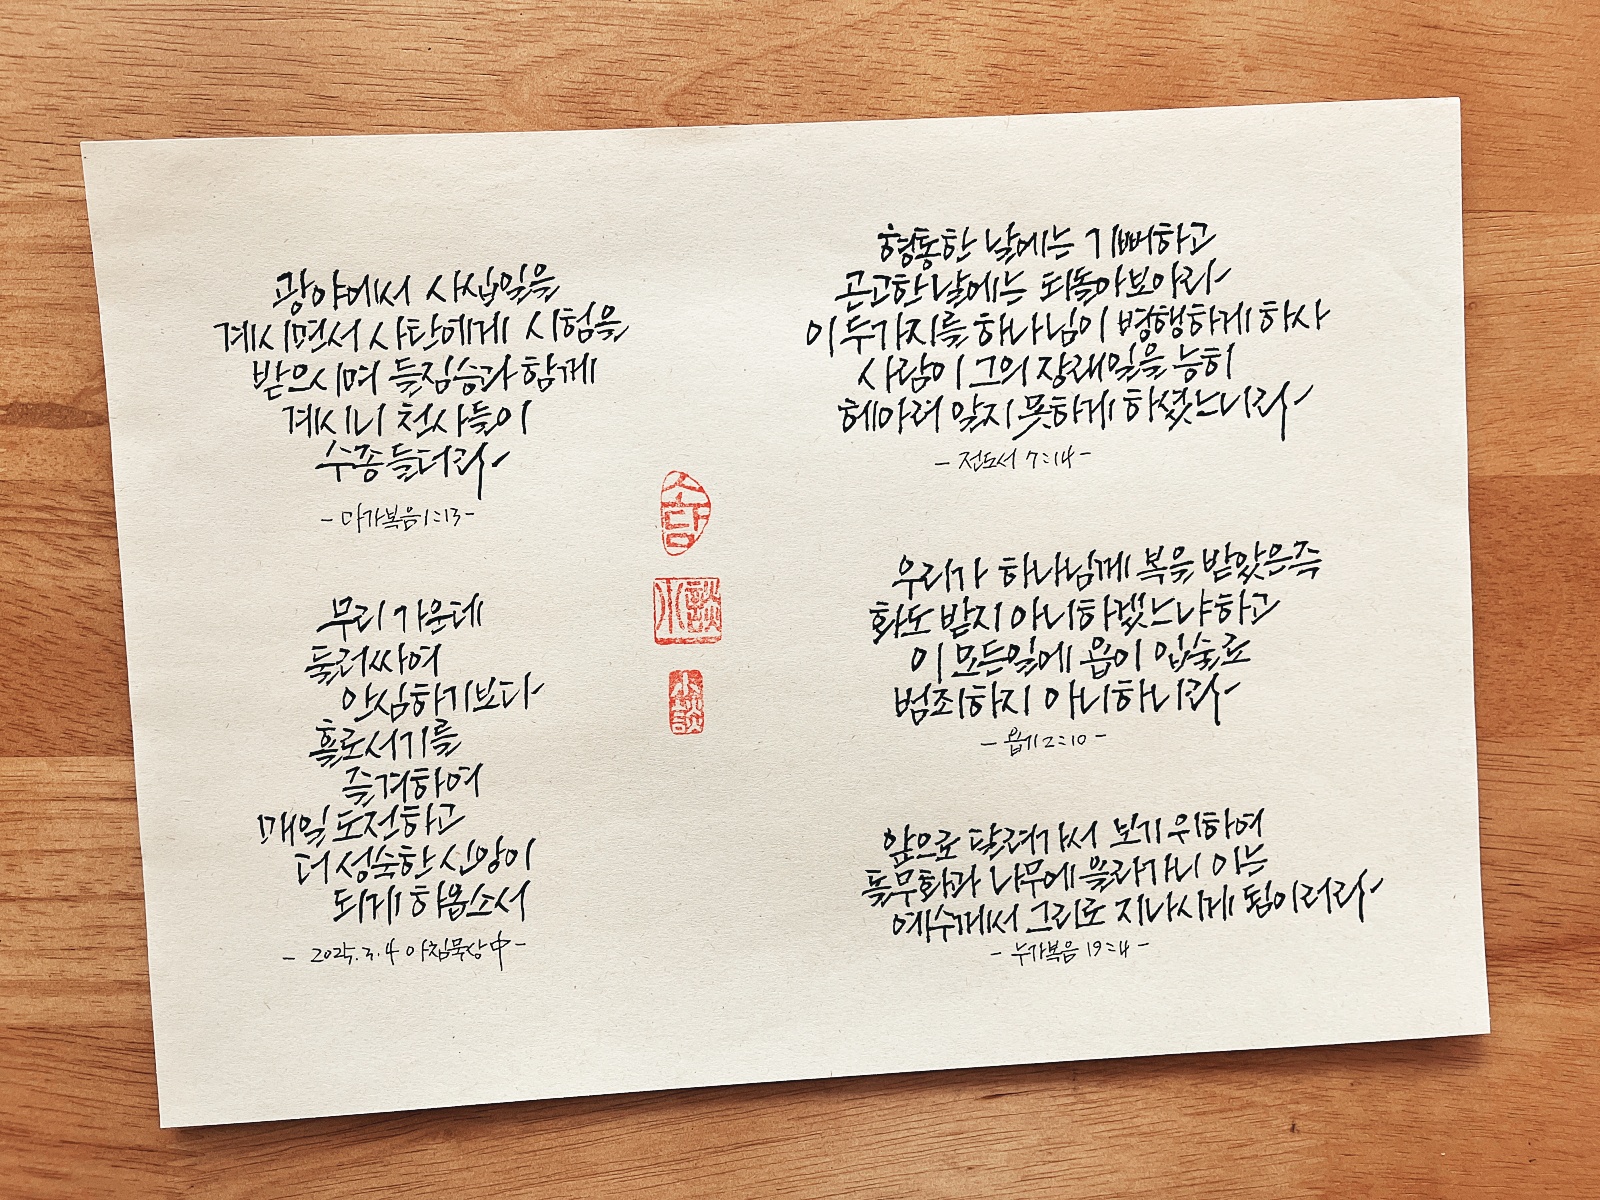 광야에서 사십일을
계시면서 사탄에게 시험을
받으시며 들짐승과 함께
계시니 천사들이
수종들더라
- 마가복음 1:13 -
무리 가운데
둘러싸여
안심하기보다
홀로서기를
즐겨하여
매일 도전하고
더 성숙한 신앙이
되게 하옵소서
- 2025. 3. 4 아침묵상 中 -
소담
小談
小談
형통한 날에는 기뻐하고
곤고한 날에는 되돌아보아라
이 두가지를 하나님이 병행하게 하사
사람이 그의 장래일을 능히
헤아려 알지 못하게 하셨느니라
- 전도서 7:14 -
우리가 하나님께 복을 받았은즉
화도 받지 아니하겠느냐 하고
이 모든일에 욥이 입술로
범죄하지 아니하니라
- 욥기 2:10 -
앞으로 달려가서 보기 위하여
돌무화과 나무에 올라가니 이는
예수께서 그리로 지나시게 됨이러라
- 누가복음 19:4 -